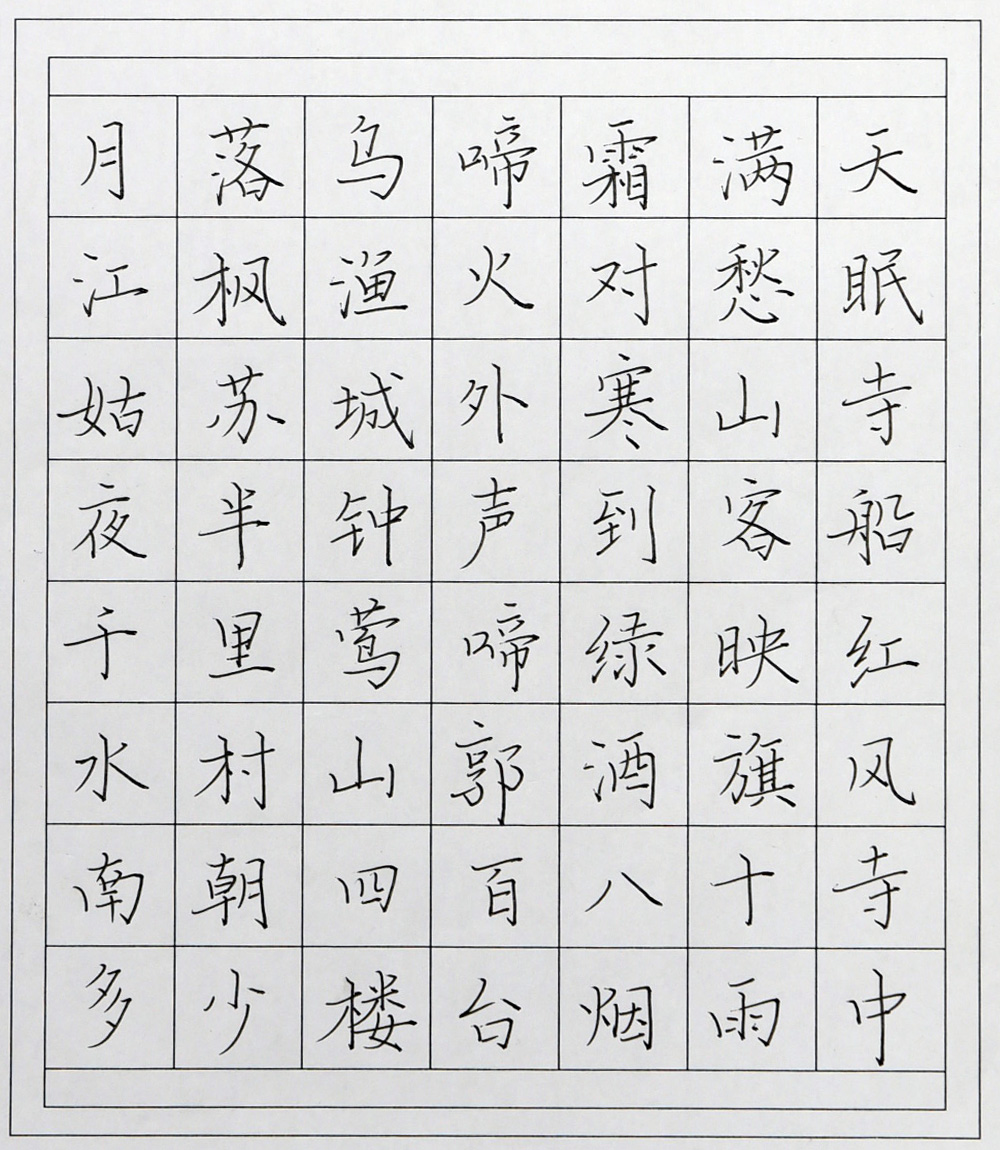 月落乌啼霜满天
江枫渔火对愁眠
姑苏城外寒山寺
夜半钟声到客船
千里莺啼绿映红
水村山郭酒旗风
南朝四百八十寺
多少楼台烟雨中